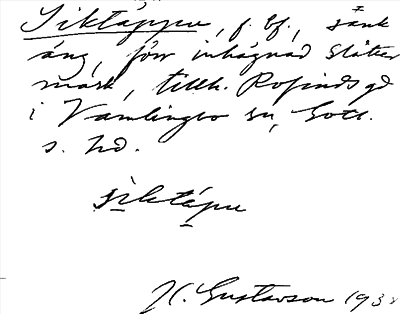 Siktäppu, f. bf., sänk
äng, förr inhägnad slåtter
mark, tillh. Rofinds gd
i Vamlingbo sn, Gotl.
s. hd.
siktápu
H. Gustavson 1938